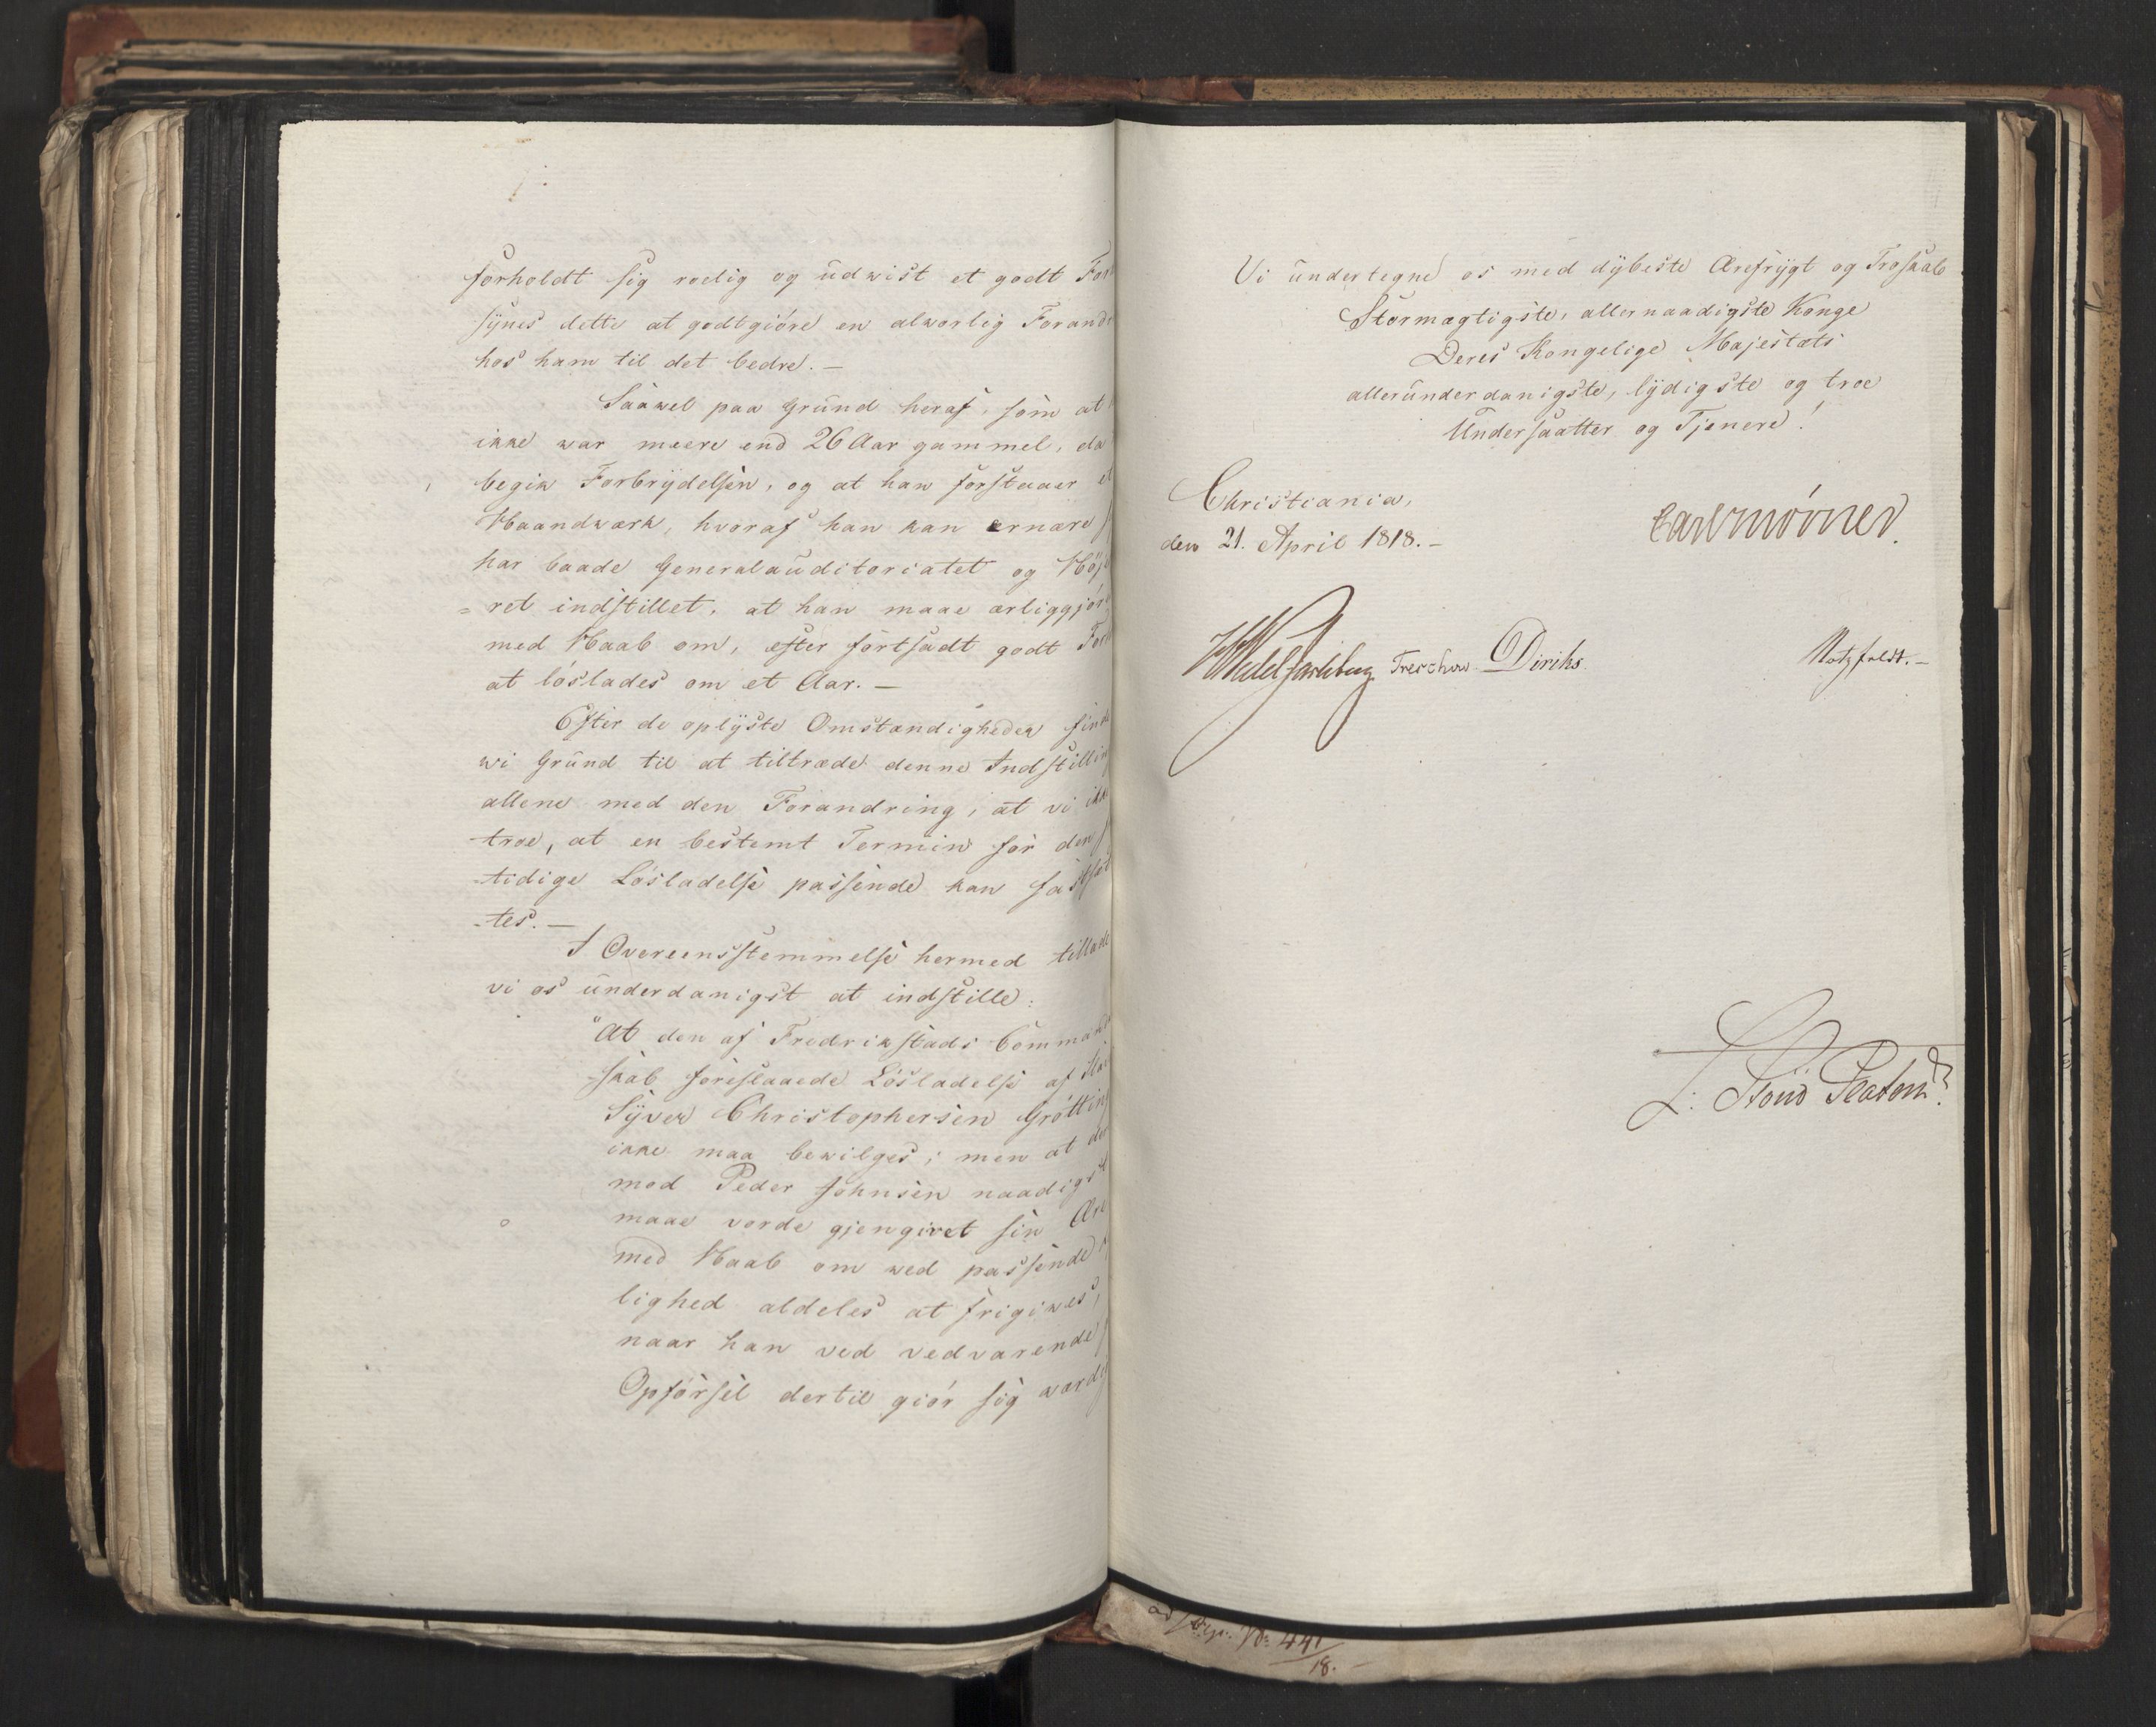 forholdt sig roelig og udwist et godt For
synes dette at godtgiöre en alworlig Forand
hos ham til det bedre. —
Saawel paa Grund heraf, som at
ikke war meere end 26 Aar gammel, da
begik Forbrydelsen, og at han forstaaer et
Haandwærk, hvoraf han kan ernære
har baade Generalauditoriatet og Höje
=ret indstillet, at han maae ærliggjöre
med Haab om, efter fortsadt godt Forh
at löslades om et Aar. —
Efter de oplyste Omstændigheder finde
wi Grund til at tiltræde denne Indstilling
allene med den Forandring, at vi ikke
troe, at en bestemt Termin for den
-tidige Lösladelse passende kan fastsæt
-tes. —
I Overeensstemmelse hermed tillade
vi os underdanigst at indstille:
"At den af Fredrikstads Command
-skab foreslaaede Lösladelse af Sla
Syver Christophersen Gröttin
ikke maa bewilges; men at der
mod Peder Johnsen naadigst
maae vorde gjengivet sin Ære
med Haab om wed passende
lighed aldeles at frigiwes,
naar han ved vedvarende
Opförsel dertil giör sig wærdig
Vi undertegne os med dybeste Ærefrygt og Troskab
Stormægtigste, allernaadigste Konge
Deres Kongelige Majestæts
allerunderdanigste, lydigste og troe
Undersaatter og Tjenere!
Christiania,
den 21. April 1818. —
Carl Mörner.
HWedel Jarlsberg Treschow Diriks Motzfeldt. —
L: Stoud Platou
No 441
18. —